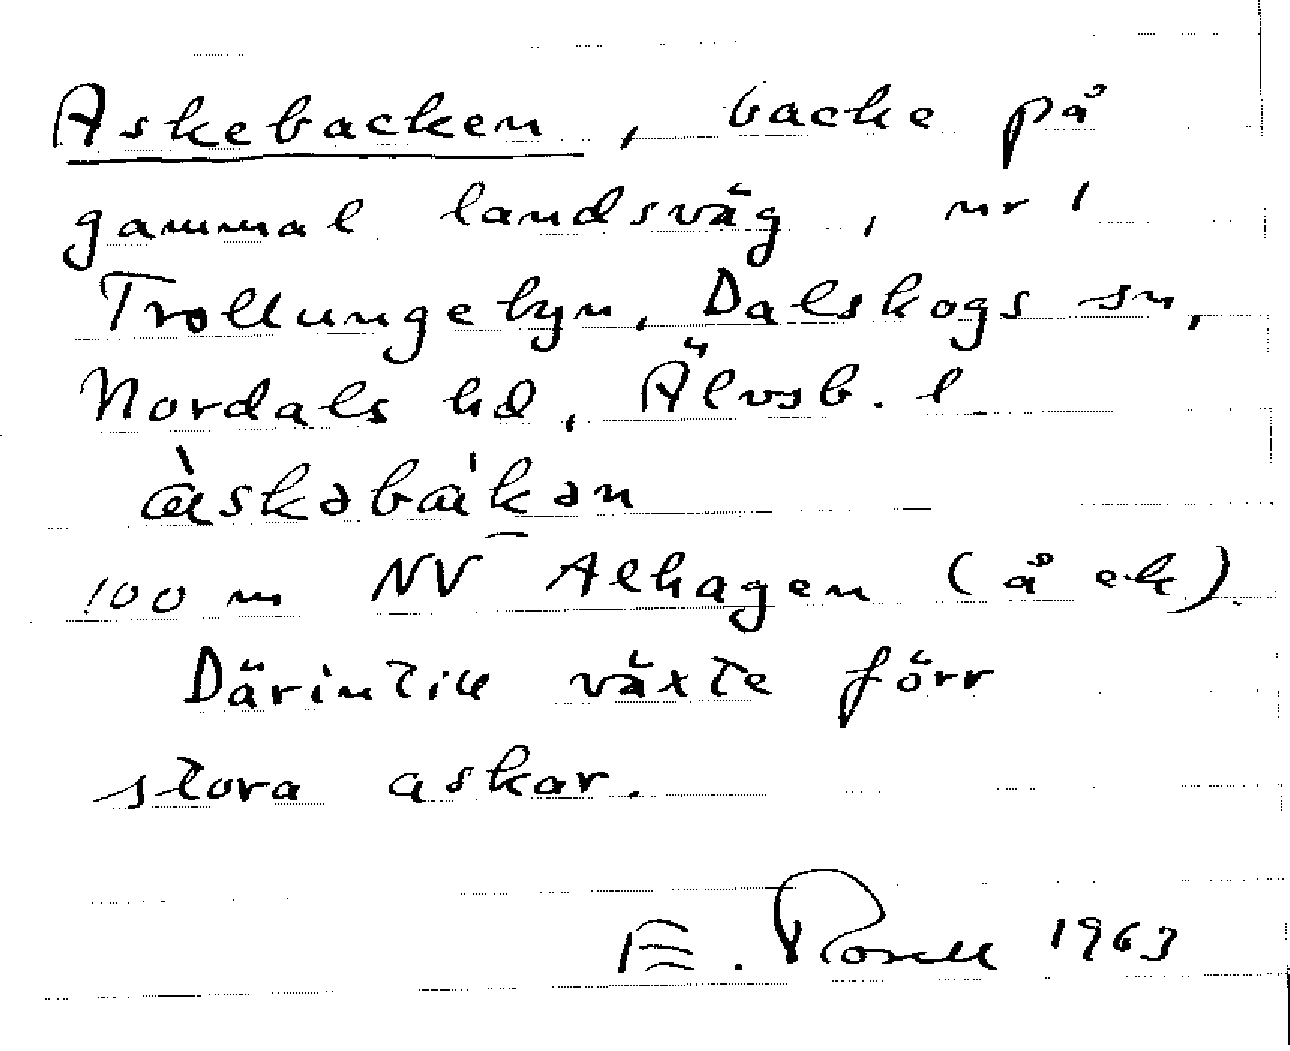 Askebacken, backe på
gammal landsväg, nr 1
Trollungebyn, Dalskogs sn,
Nordals hd, Älvsb. l
àskəbákən
100 m NV Alhagen (å ek).
Därintill växte förr
stora askar.
E. Rosell 1963